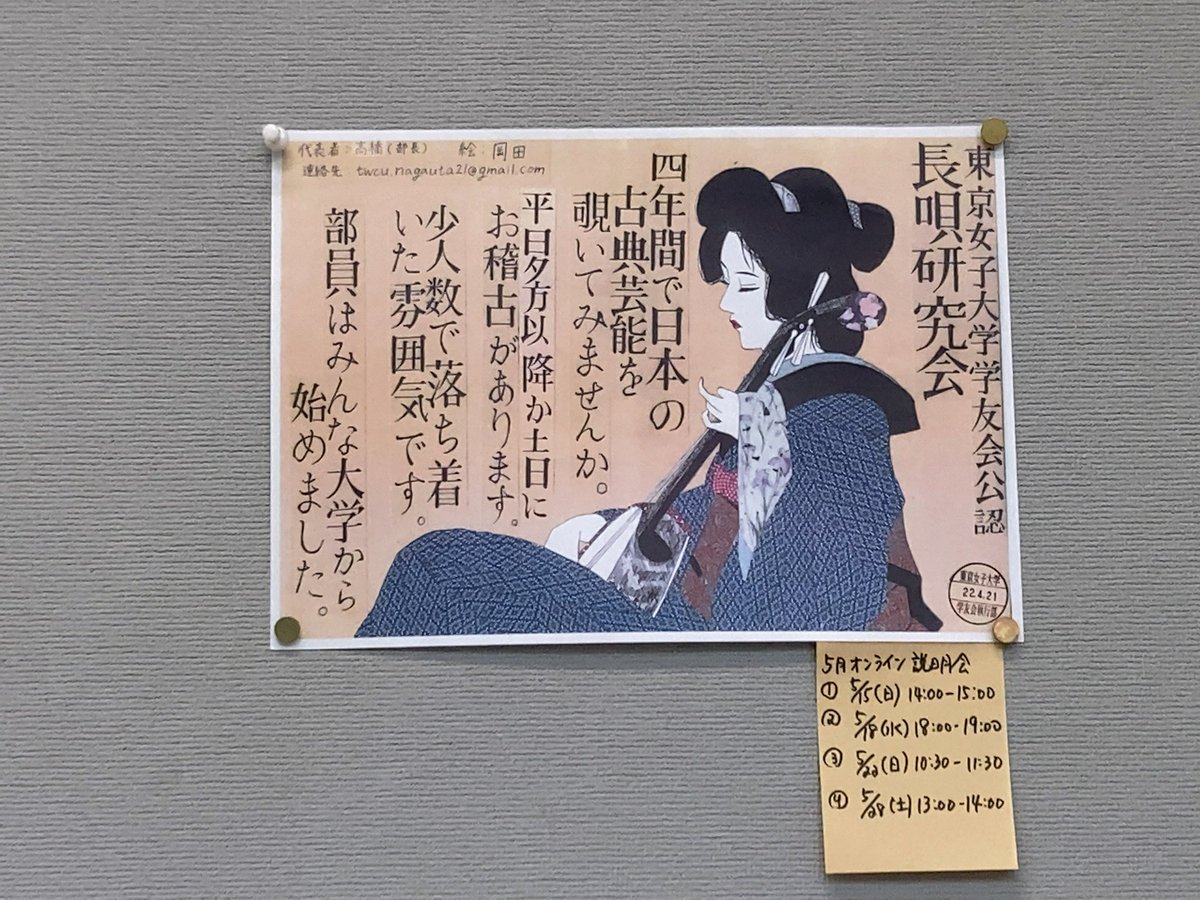 東京女子大学学友会公認
長唄研究会
四年間で日本の
古典芸能を
覗いてみませんか。
平日夕方以降か土日に
お稽古があります。
少人数で落ち着
いた雰囲気です。
部員はみんな大学から
始めました。
代表者:高橋(部長) 絵:岡田
連絡先 twcu.nagauta21@gmail.com
東京女子大学
22.4.21
学友会執行部
5月オンライン説明会
① 5/15(日) 14:00-15:00
② 5/18(水) 18:00-19:00
③ 5/22(日) 10:30-11:30
④ 5/28(土) 13:00-14:00